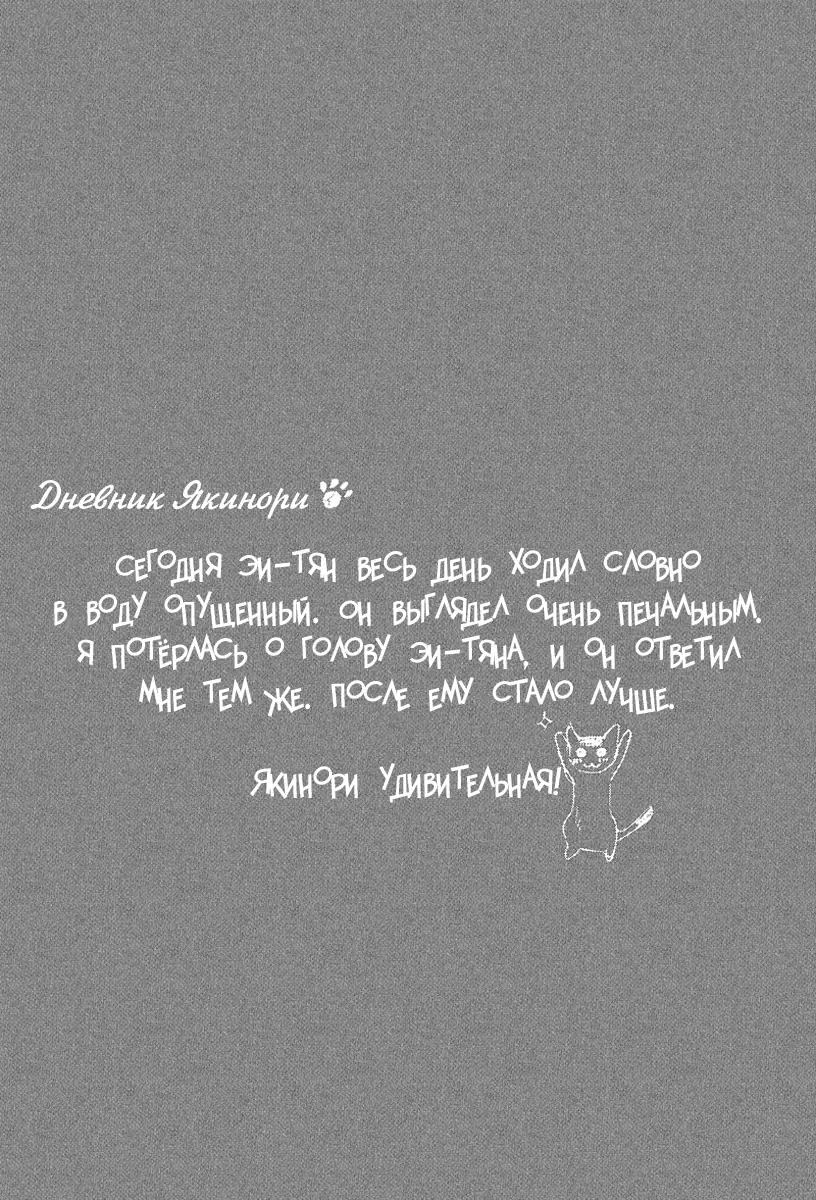 Дневник Якинори
Сегодня Эи-тян весь день ходил словно
в воду опущенный. Он выглядел очень печальным.
Я потёрлась о голову Эи-тяна, и он ответил
мне тем же. После ему стало лучше.
Якинори удивительная!